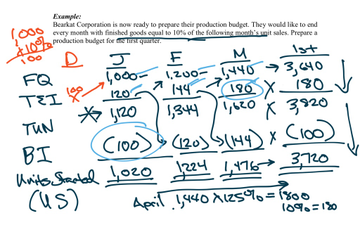 Example:
Bearkat Corporation is now ready to prepare their production budget. They would like to end
every month with finished goods equal to 10% of the following month's unit sales. Prepare a
production budget for the first quarter.
1,000
x10%
100
D J F M 1st
FQ 1,000 1,200 1,440 3,640
TEI 100 120 144 180 180
1,120 1,344 1,620 3,820
TUN
BI (100) (120) (144) (100)
Units Started 1,020 1,224 1,476 3,720
(US)
April 1,440 x 125% = 1800
10% = 180